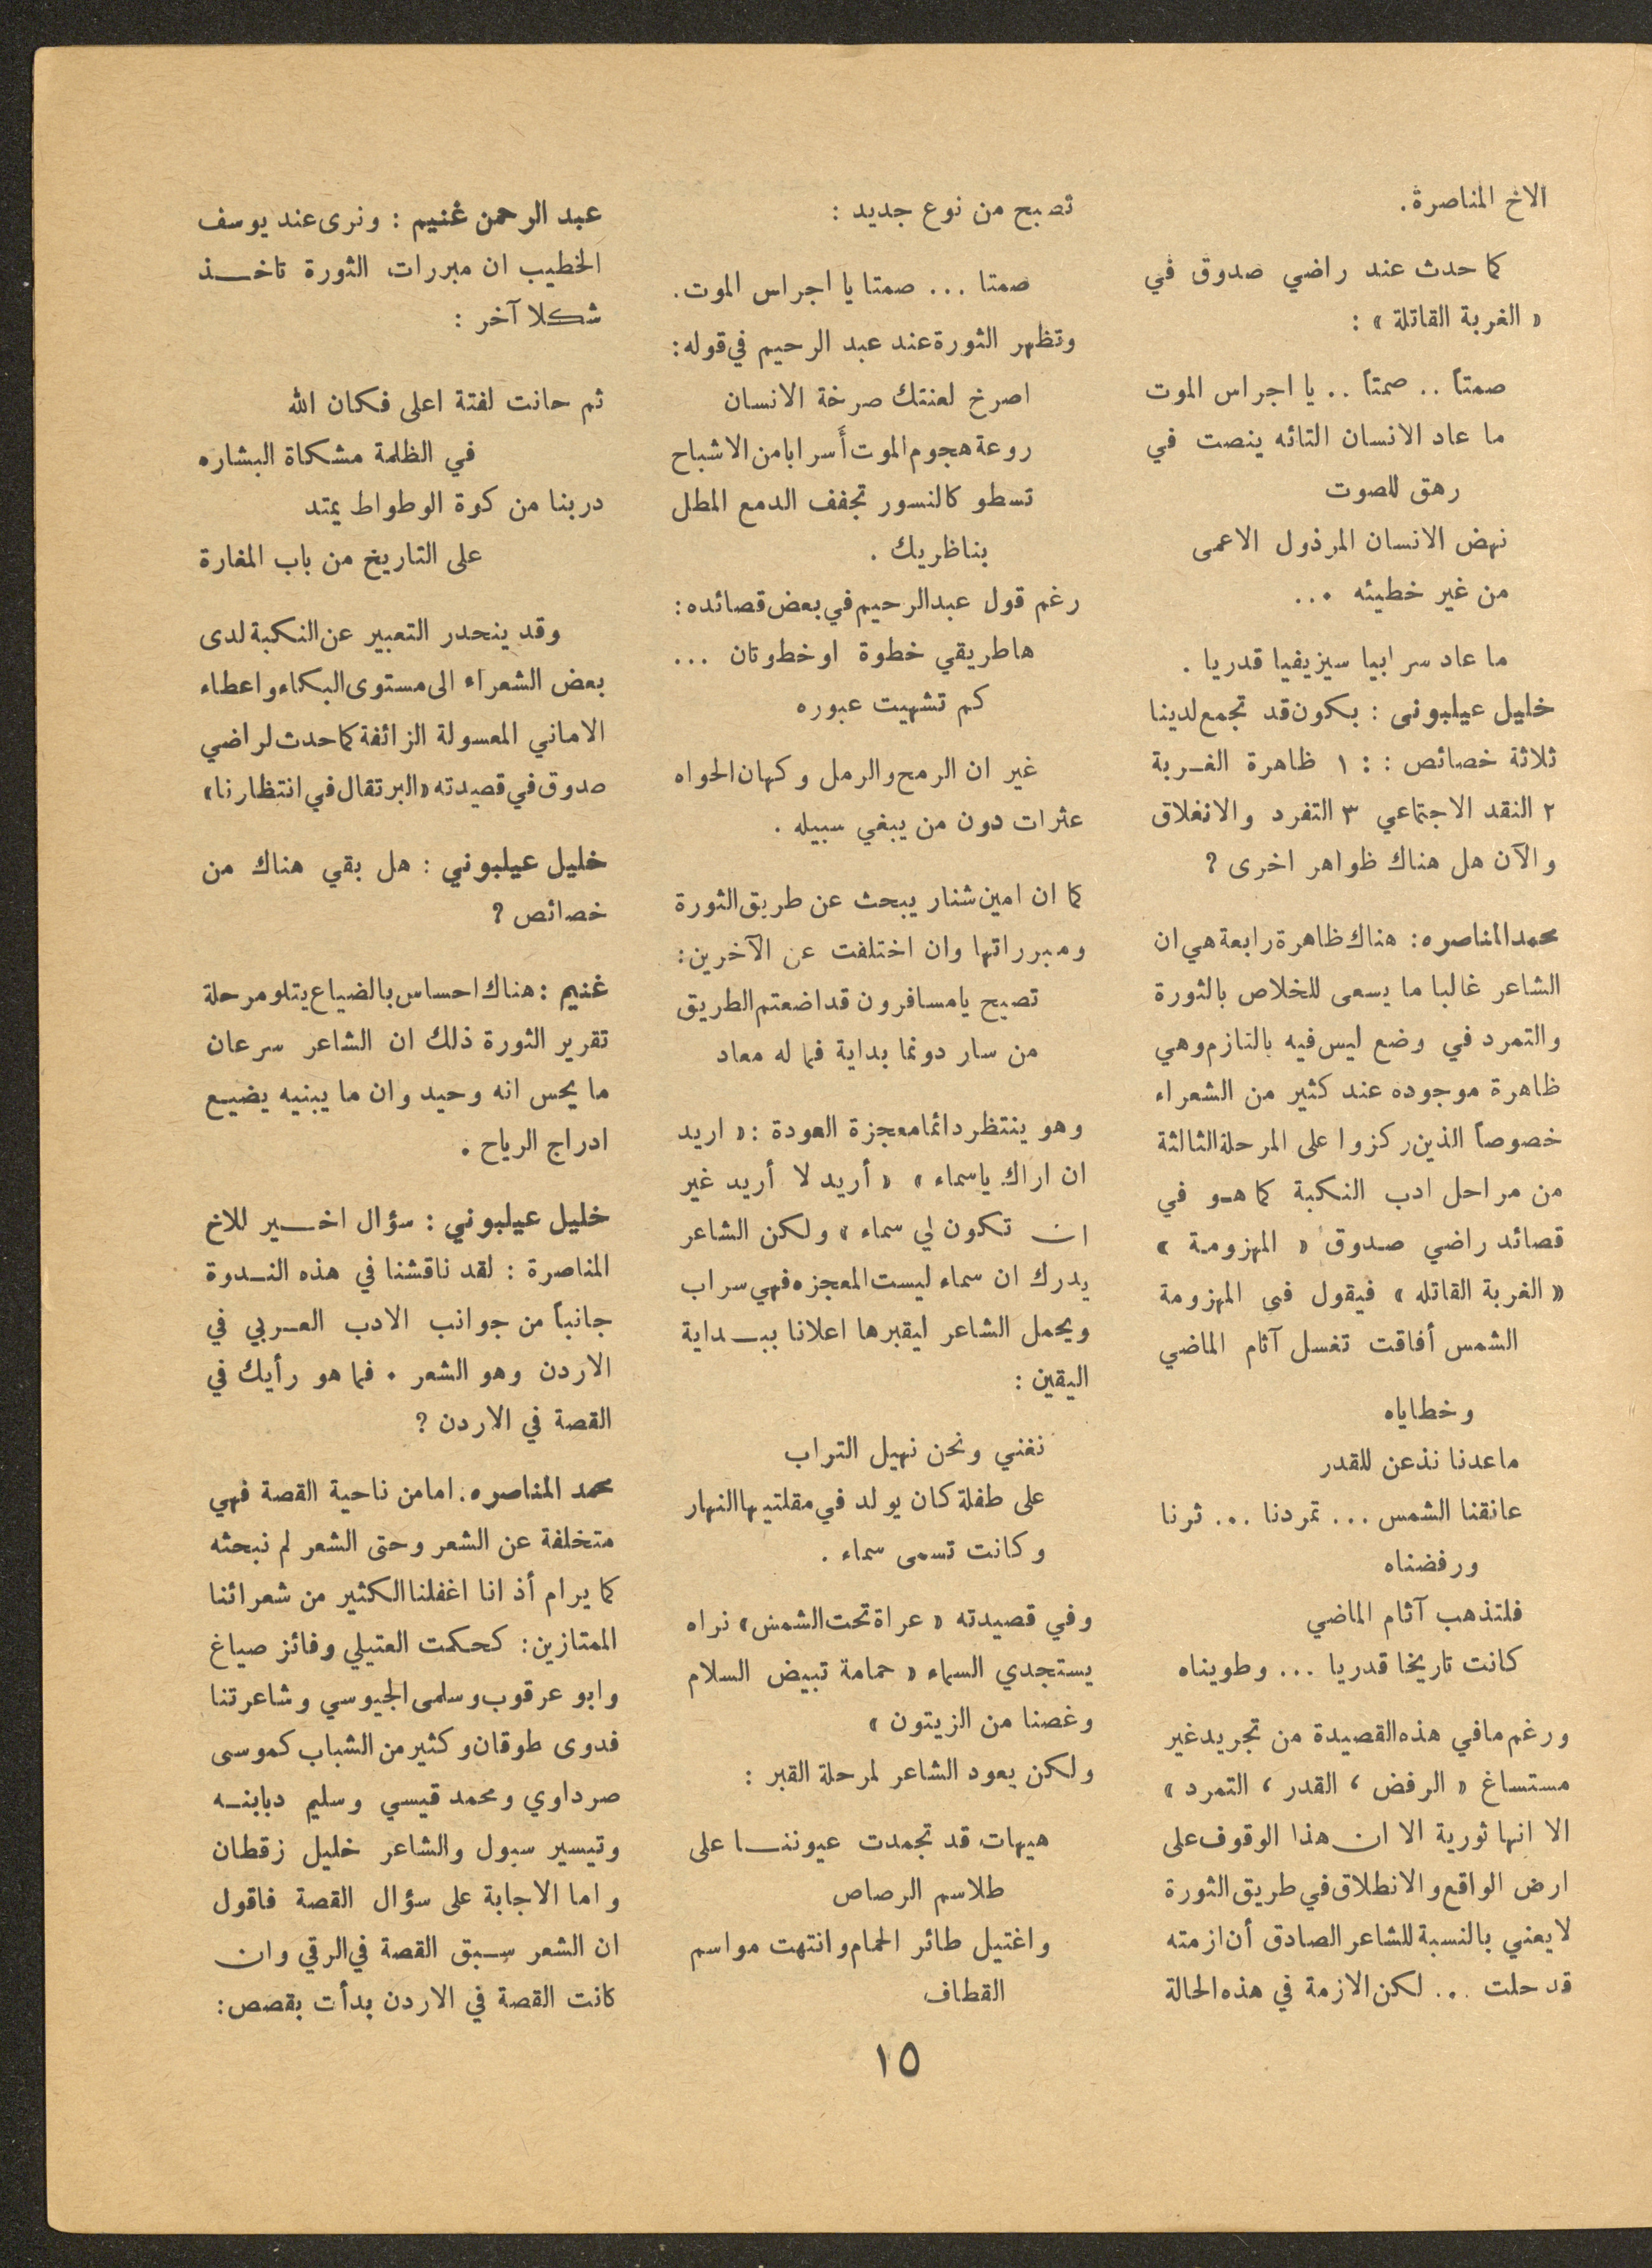 الاخ المناصرة.
كما حدث عند راضي صدوق في
« الغربة القاتلة » :
صمتاً .. صمتاً .. يا اجراس الموت
ما عاد الانسان التائه ينصت في
رهق للصوت
نهض الانسان المرذول الاعمى
من غير خطيئه ...
ما عاد سرابيا سيزيفيا قدريا .
خليل عيلبوني : بكون قد تجمع لدينا
ثلاثة خصائص : : ١ ظاهرة الغربة
٢ النقد الاجتماعي ٣ التفرد والانغلاق
والآن هل هناك ظواهر اخرى ؟
محمد المناصره : هناك ظاهرة رابعة هي ان
الشاعر غالبا ما يسعى للخلاص بالثورة
والتمرد في وضع ليس فيه بالتازم وهي
ظاهرة موجوده عند كثير من الشعراء
خصوصاً الذين ركزوا على المرحلة الثالثة
من مراحل ادب النكبة كما هو في
قصائد راضي صدوق « المهزومة »
« الغربة القاتله » فيقول في المهزومة
الشمس أفاقت تغسل آثام الماضي
وخطاياه
ما عدنا نذعن للقدر
عانقنا الشمس ... تمردنا ... ثرنا
ورفضناه
فلتذهب آثام الماضي
كانت تاريخا قدريا ... وطويناه
ورغم مافي هذه القصيدة من تجريد غير
مستساغ « الرفض ، القدر ، التمرد »
الا انها ثورية الا ان هذا الوقوف على
ارض الواقع والانطلاق في طريق الثورة
لا يعني بالنسبة للشاعر الصادق أن ازمته
قد حلت ... لكن الازمة في هذه الحالة
تصبح من نوع جديد :
صمتا ... صمتا يا اجراس الموت.
وتظهر الثورة عند عبد الرحيم في قوله :
اصرخ لعنتك صرخة الانسان
روعة هجوم الموت أَسرابا من الاشباح
تسطو كالنسور تجفف الدمع المطل
بناظريك .
رغم قول عبد الرحيم في بعض قصائده :
ها طريقي خطوة او خطوتان ...
كم تشهيت عبوره
غير ان الرمح والرمل وكهان الحواه
عثرات دون من يبغي سبيله .
كما ان امين شنار يبحث عن طريق الثورة
ومبرراتها وان اختلفت عن الآخرين :
تصيح يا مسافرون قد اضعتم الطريق
من سار دونما بداية فما له معاد
وهو ينتظر دائما معجزة العودة : « اريد
ان اراك ياسماء » « أريد لا أريد غير
ان تكون لي سماء » ولكن الشاعر
يدرك ان سماء ليست المعجزه فهي سراب
ويحمل الشاعر ليقبرها اعلانا ببداية
اليقين :
نغني ونحن نهيل التراب
على طفلة كان يولد في مقلتيها النهار
وكانت تسمى سماء .
وفي قصيدته « عراة تحت الشمس » نراه
يستجدي السماء « حمامة تبيض السلام
وغصنا من الزيتون »
ولكن يعود الشاعر لمرحلة القبر :
هيهات قد تجمدت عيوننا على
طلاسم الرصاص
واغتيل طائر الحمام وانتهت مواسم
القطاف
عبد الرحمن غنيم : ونرى عند يوسف
الخطيب ان مبررات الثورة تاخذ
شكلا آخر :
ثم حانت لفتة اعلى فكان الله
في الظلمة مشكاة البشاره
دربنا من كوة الوطواط يمتد
على التاريخ من باب المغارة
وقد ينحدر التعبير عن النكبة لدى
بعض الشعراء الى مستوى البكاء واعطاء
الاماني المعسولة الزائفة كما حدث لراضي
صدوق في قصيدته «البرتقال في انتظارنا»
خليل عيلبوني : هل بقي هناك من
خصائص ؟
غنيم : هناك احساس بالضياع يتلو مرحلة
تقرير الثورة ذلك ان الشاعر سرعان
ما يحس انه وحيد وان ما يبنيه يضيع
ادراج الرياح .
خليل عيلبوني : سؤال اخير للاخ
المناصرة : لقد ناقشنا في هذه الندوة
جانباً من جوانب الادب العربي في
الاردن وهو الشعر . فما هو رأيك في
القصة في الاردن ؟
محمد المناصره . اما من ناحية القصة فهي
متخلفة عن الشعر وحتى الشعر لم نبحثه
كما يرام أذ انا اغفلنا الكثير من شعرائنا
الممتازين : كحكمت العتيلي وفائز صياغ
وابو عرقوب وسلمى الجيوسي وشاعرتنا
فدوى طوقان وكثير من الشباب كموسى
صرداوي ومحمد قيسي وسليم دبابنه
وتيسير سبول والشاعر خليل زقطان
واما الاجابة على سؤال القصة فاقول
ان الشعر سبق القصة في الرقي وان
كانت القصة في الاردن بدأت بقصص :
١٥